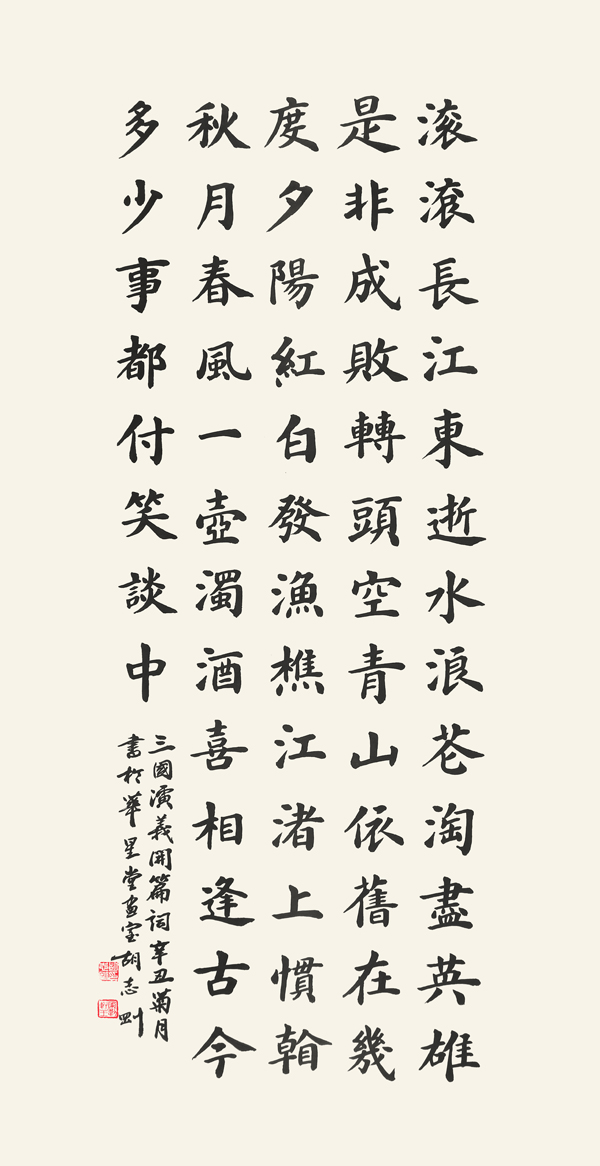 滚滾長江東逝水浪花淘盡英雄
是非成敗轉頭空青山依舊在幾
度夕陽紅白發漁樵江渚上慣看
秋月春風一壺濁酒喜相逢古今
多少事都付笑談中
三國演義開篇詞辛丑菊月
書於華星堂畫室胡志剛